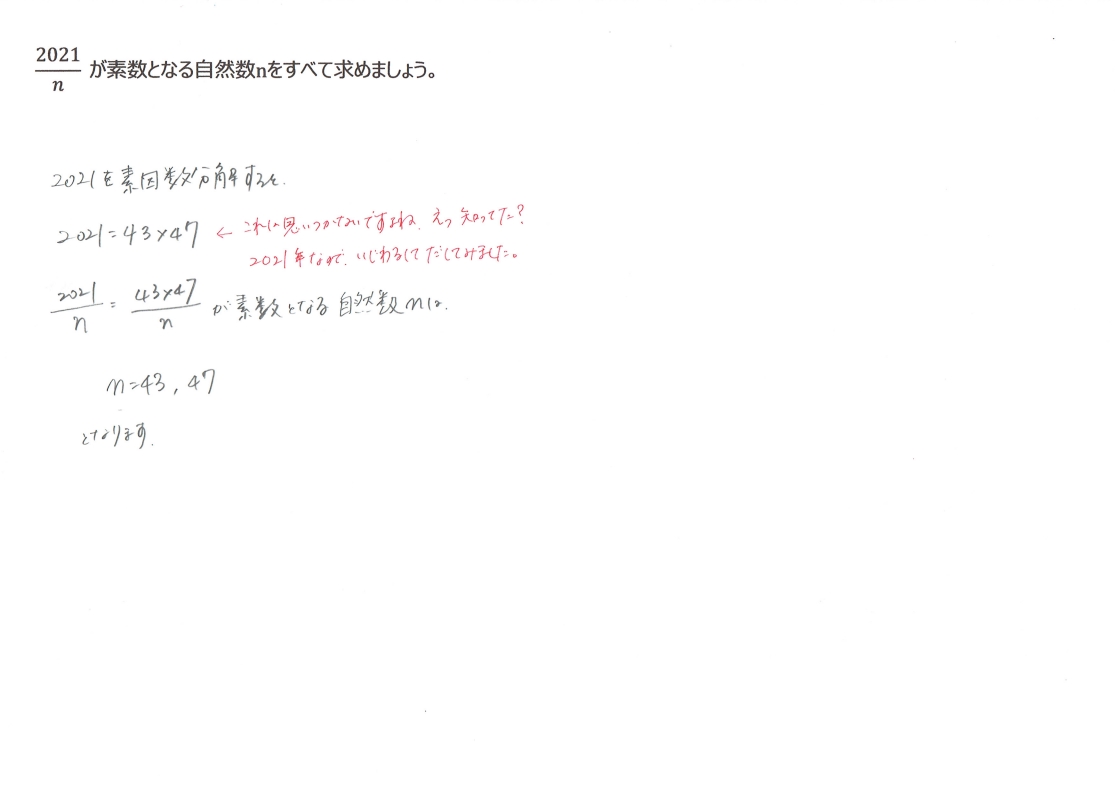 2021/n が素数となる自然数nをすべて求めましょう。
2021を素因数分解すると、
2021=43×47 ← これは思いつかないですよね、えっ知ってた?
2021年なので、いじわるしてだしてみました。
2021/n = 43×47/n が素数となる自然数nは、
n=43, 47
となります.